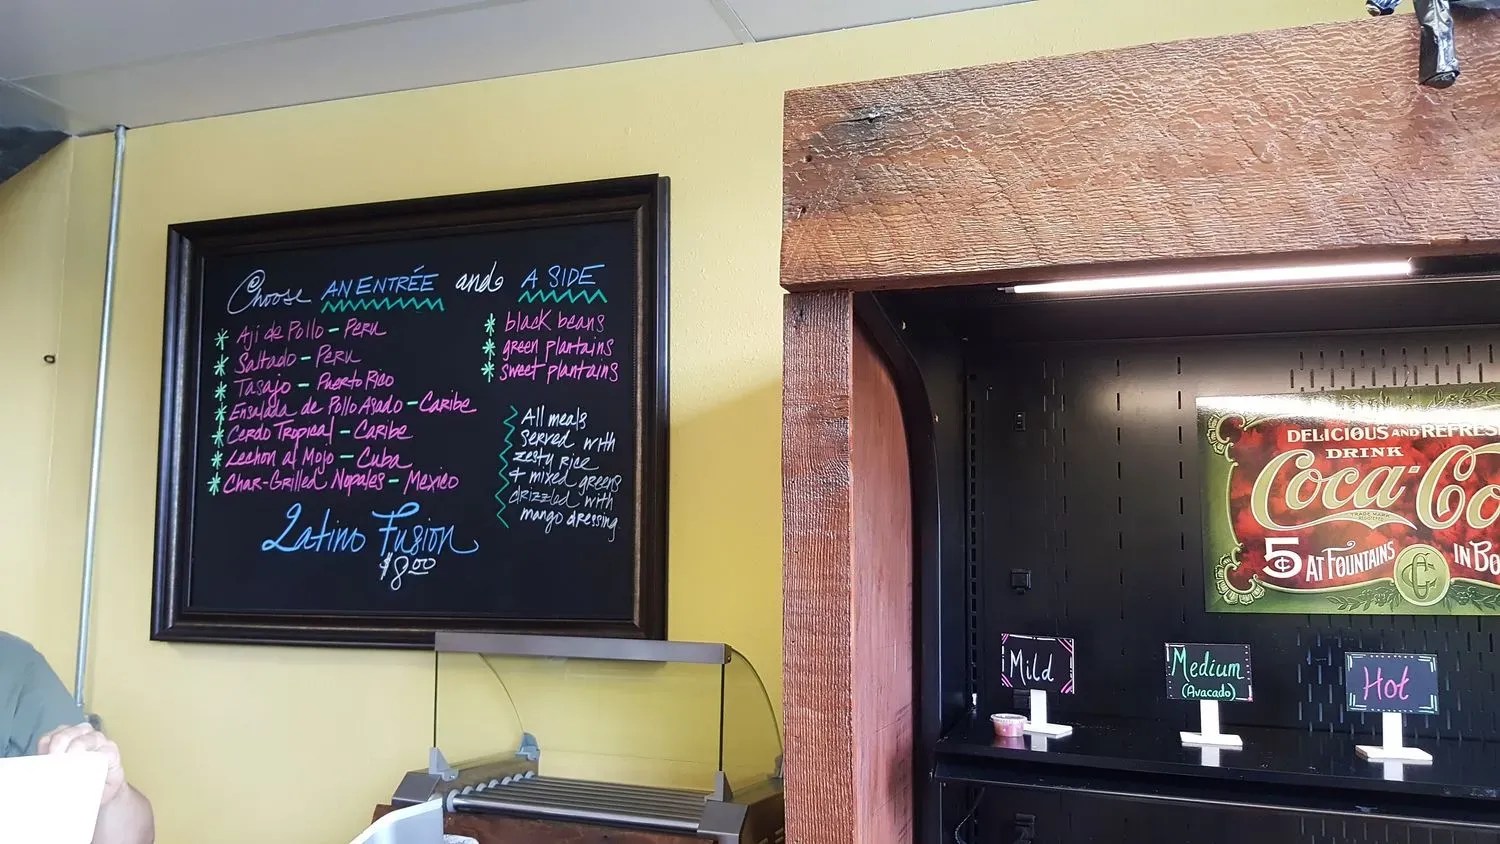 Choose AN ENTRÉE and A SIDE
Aji de Pollo - Peru
Saltado - Peru
Tasajo - Puerto Rico
Ensalada de Pollo Asado - Caribe
Cerdo Tropical - Caribe
Lechon al Mojo - Cuba
Char-Grilled Nopales - Mexico
black beans
green plantains
sweet plantains
All meals
served with
zesty rice
+ mixed greens
drizzled with
mango dressing.
Latino Fusion
$8.00
DELICIOUS AND REFRES
DRINK
Coca-Co
TRADE MARK
5¢ AT FOUNTAINS
IN BO
Mild
Medium
(Avacado)
Hot